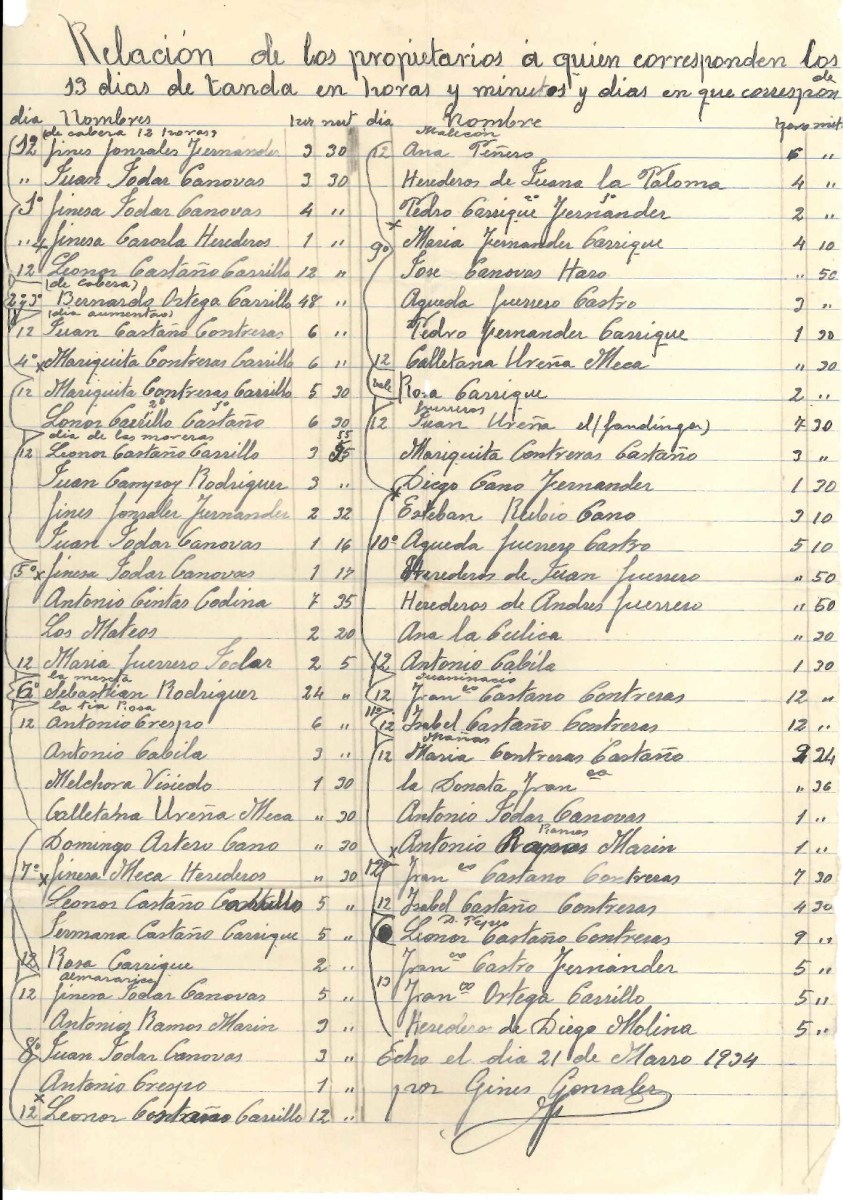 Relación de los propietarios á quien corresponden los
13 dias de tanda en horas y minutos y dias en que correspon de
dia Nombres hor nut dia Nombre hora mit
de cabera 12 horas
12 Jines Jonzales Fernander 3 30
" Juan Jodar Canovas 3 30
1º Jinesa Jodar Canovas 4 "
" x Jinesa Casorla Herederos 1 "
12 Leonor Castaño Carrillo 12 "
(de cabera)
2º y 3º Bernardo Ortega Carrillo 48 "
(dia aumentao)
12 Juan Castaño Contreras 6 "
4º x Mariquita Contreras Carrillo 6 "
12 Mariquita Contreras Carrillo 5 30
Lonor Carrillo 2º Castaño 1º 6 30
dia de las moreras
12 Leonor Castaño Carrillo 3 55
Juan Campoy Rodriguer 3 "
Jines Jonzaler Fernander 2 32
Juan Jodar Canovas 1 16
5º x Jinesa Jodar Canovas 1 17
Antonio Cintas Codina 7 35
Los Mateos 2 20
12 Maria Guerrero Jodar 2 5
la mersá
6º Sebastian Rodriguer 24 "
la tia Rosa
12 Antonio Crespo 6 "
Antonio Cabila 3 "
Melchora Visiedo 1 30
Calletana Ureña Meca " 30
Domingo Artero Cano " 30
7º x Jinesa Meca Herederos " 30
Leonor Castaño 5 "
Jermana Castaño Carrique 5 "
12 Rosa Carrique 2 "
almararica
12 Jinesa Jodar Canovas 5 "
Antonio Ramos Marin 3 "
8º Juan Jodar Canovas 3 "
Antonio Crespo 1 "
x
12 Leonor Castaño Carrillo 12 "
Malecón
12 Ana Piñero 6 "
Herederos de Juana la Paloma 4 "
Pedro Carrique 2º Fernander 1º 2 "
x Maria Fernander Carrique 4 10
9º Jose Canovas Haro " 50
Agueda Guerrero Castro 3 "
Pedro Fernander Carrique 1 30
12 Calletana Ureña Meca " 30
vale Rosa Carrique 2 "
furreros
12 Juan Ureña el (fandingar) 7 30
Mariquita Contreras Castaño 3 "
x Diego Cano Fernander 1 30
Esteban Rubio Cano 3 10
10º Agueda Guerrero Castro 5 10
Herederos de Juan Guerrero " 50
Herederos de Andres Guerrero " 50
Ana la Culica " 30
12 Antonio Cabila 1 30
12 Fran co Castano Contreras 12 "
11º
12 Isabel Castaño Contreras 12 "
Mañas
12 Maria Contreras Castaño 2 24
la Donata Fran ca " 36
Antonio Jodar Canovas 1 "
x Antonio Ramos Marin 1 "
12º Fran co Castano Contreras 7 30
12 Isabel Castaño Contreras 4 30
Leonor Castaño Contreras 9 "
Fran co Castro Fernánder 5 "
13 Fran co Ortega Carrillo 5 "
Herederos de Diego Molina 5 "
Echo el dia 21 de Marzo 1934
por Gines Gonzales